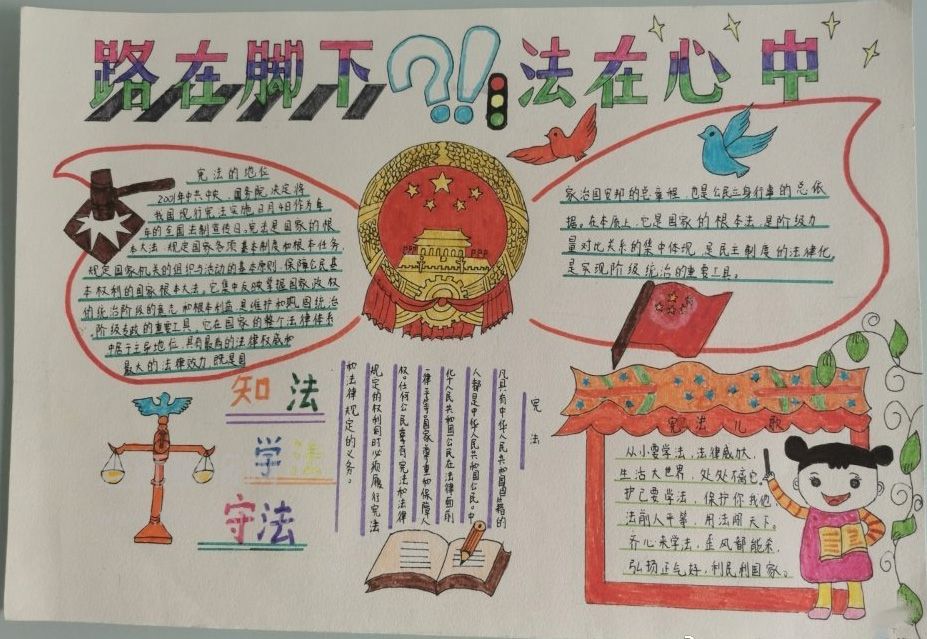 路在脚下?!法在心中
宪法的地位
2001年中共中央、国务院决定将
我国现行宪法实施日12月4日作为每
年的全国法制宣传日。宪法是国家的根
本大法,规定国家各项基本制度和根本任务,
规定国家机关的组织与活动的基本原则,保障公民基
本权利的国家根本大法。它集中反映掌握国家政权
的统治阶级的意志和根本利益,是维护和巩固统治
阶级专政的重要工具。它在国家的整个法律体系
中居于主导地位,具有最高的法律权威和
最大的法律效力,既是国
家治国安邦的总章程,也是公民立身行事的总依
据。在本质上,它是国家的根本法,是阶级力
量对比关系的集中体现,是民主制度的法律化,
是实现阶级统治的重要工具。
知法
学法
守法
宪法
凡具有中华人民共和国国籍的
人都是中华人民共和国公民。中
华人民共和国公民在法律面前
一律平等。国家尊重和保障人
权。任何公民享有宪法和法律
规定的权利同时必须履行宪法
和法律规定的义务。
宪法儿歌
从小要学法,法律威力大,
生活大世界,处处不离它,
护己要学法,保护你我他,
法前人平等,用法闯天下。
齐心来学法,歪风都能杀,
弘扬正气好,利民利国家。